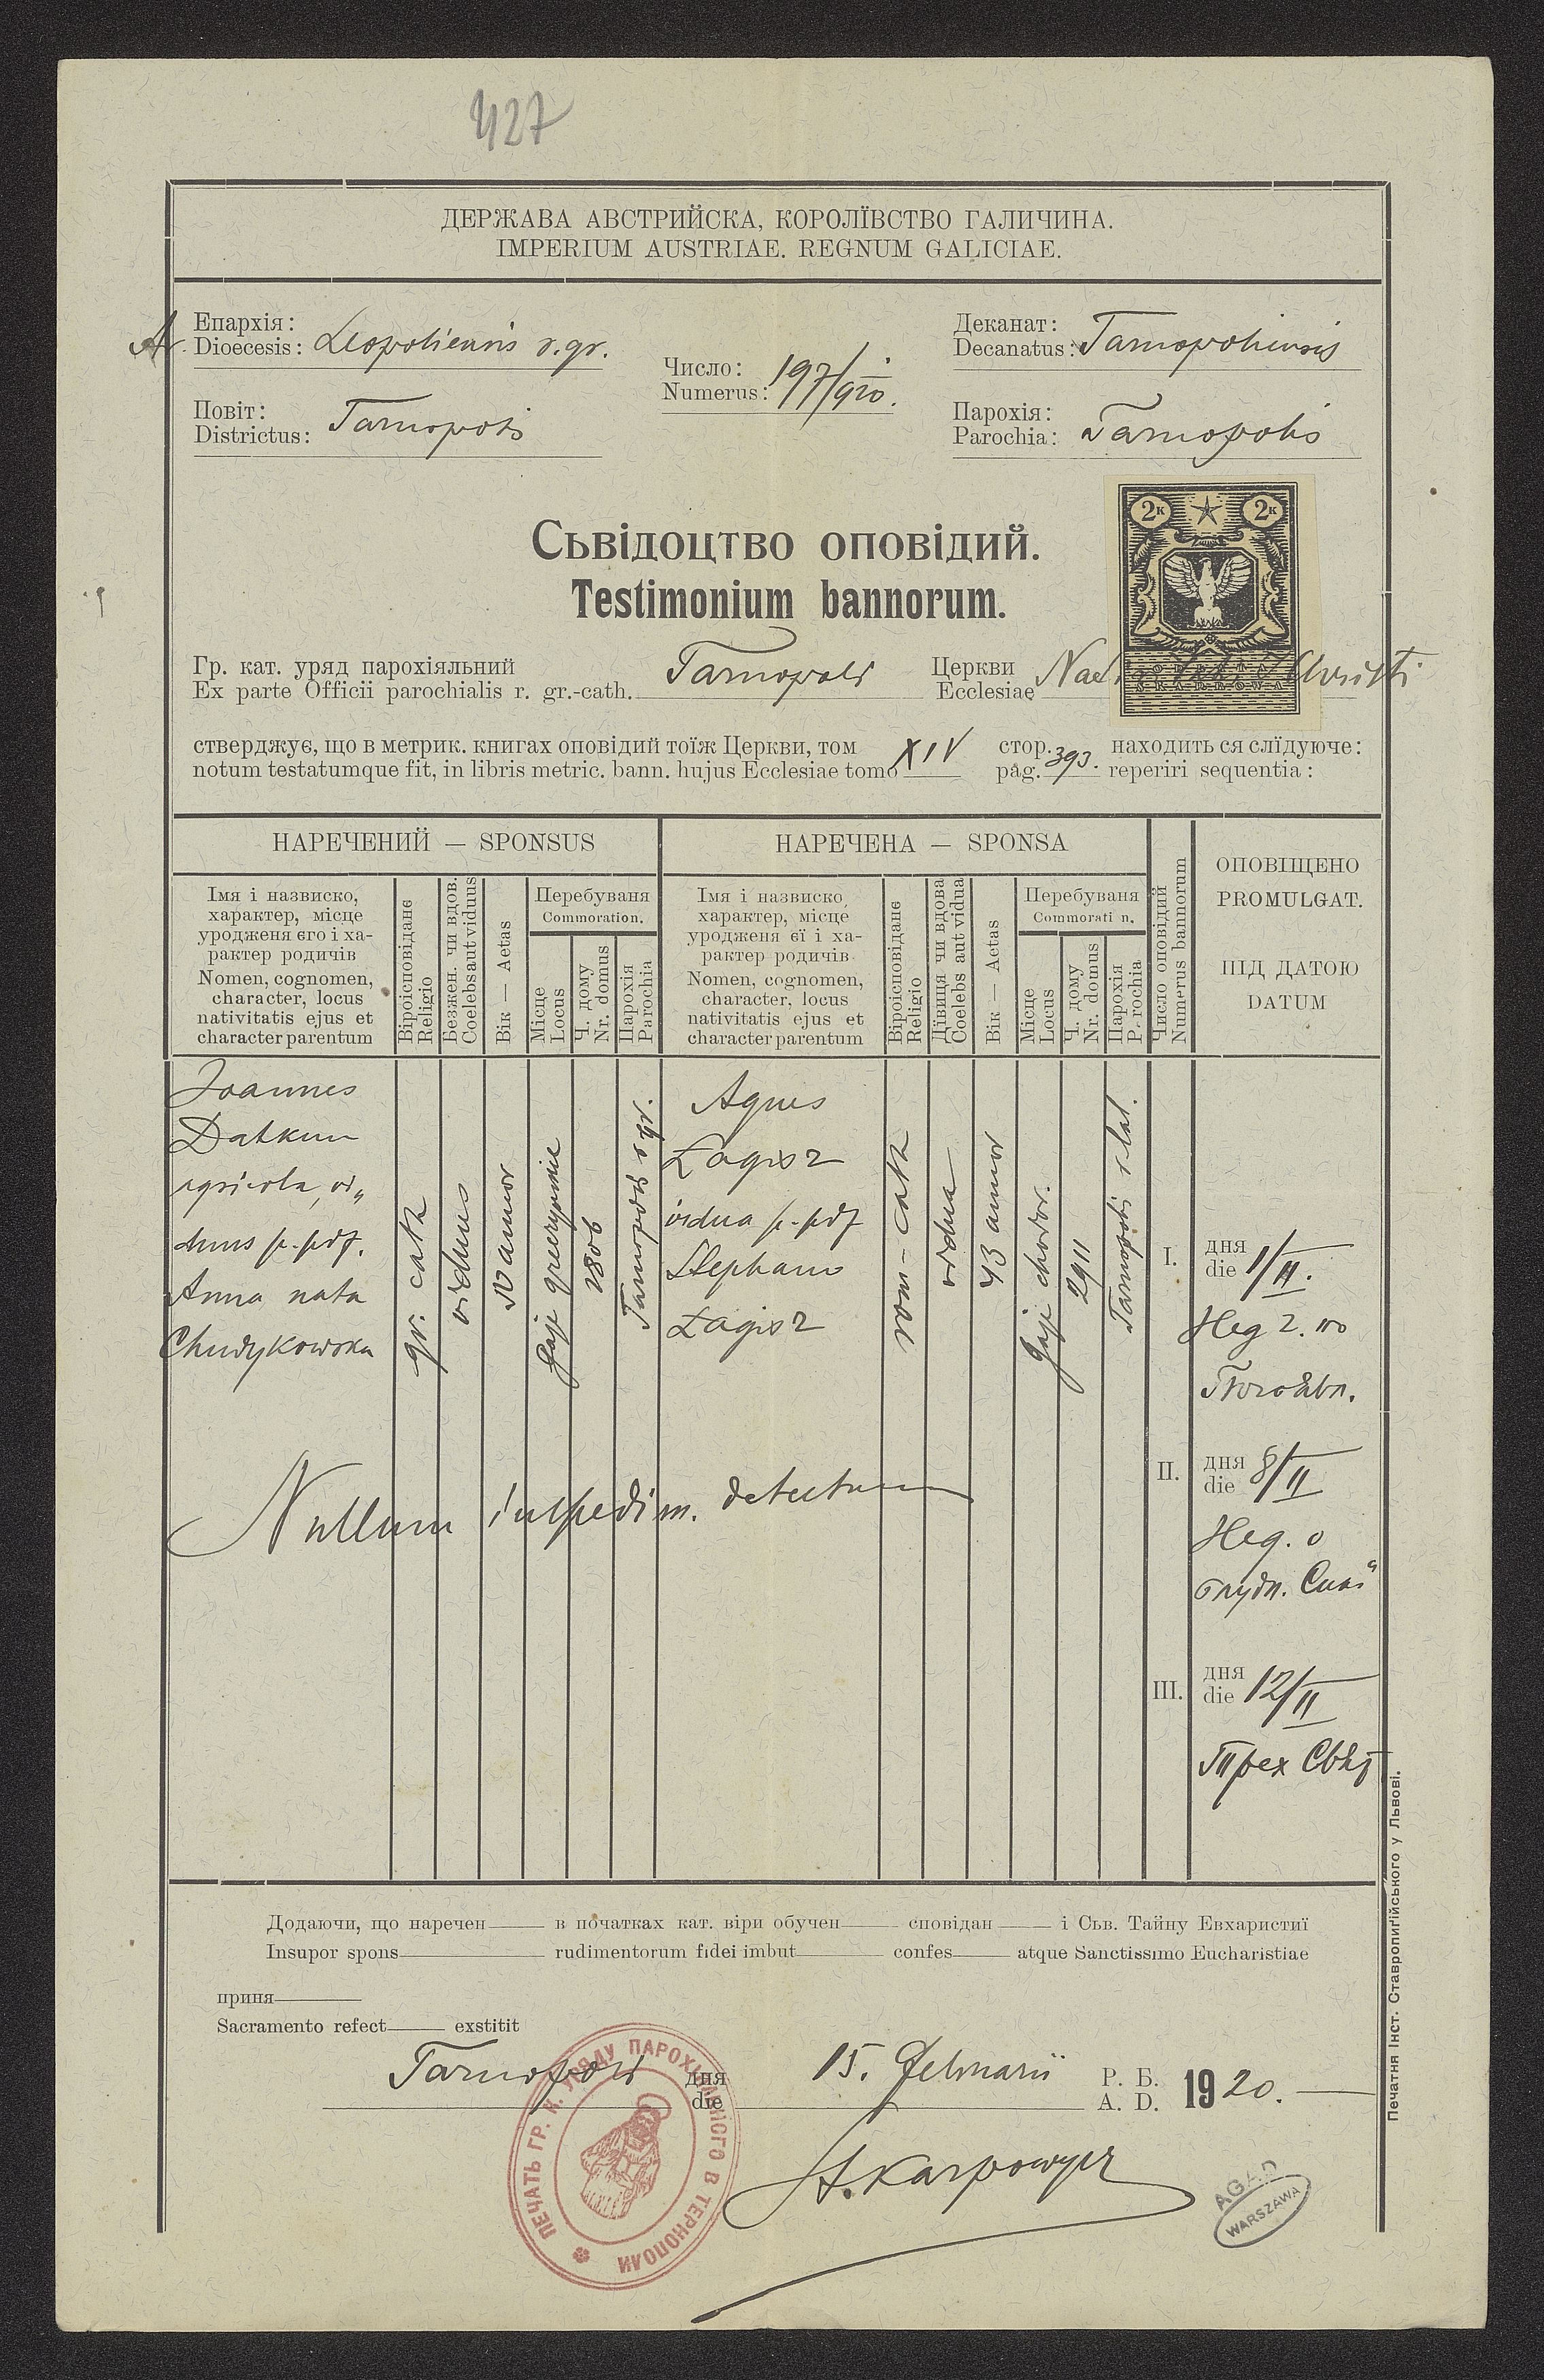 427
ДЕРЖАВА АВСТРИЙСКА, КОРОЛЇВСТВО ГАЛИЧИНА.
IMPERIUM AUSTRIAE. REGNUM GALICIAE.
Епархія:
Ar. Dioecesis: Leopoliensis r. gr.
Число:
Numerus: 197/920.
Деканат:
Decanatus: Tarnopoliensis
Повіт:
Districtus: Tarnopolis
Парохія:
Parochia: Tarnopolis
2К 2К
Сьвідоцтво оповідий.
Testimonium bannorum.
Гр. кат. уряд парохіяльний
Ex parte Officii parochialis r. gr.-cath. Tarnopoli
Церкви
Ecclesiae Christi
стверджує, що в метрик. книгах оповідий тоїж Церкви, том стор. находить ся слїдуюче:
notum testatumque fit, in libris metric. bann. hujus Ecclesiae tomo XIV pag. 393. reperiri sequentia:
НАРЕЧЕНИЙ — SPONSUS
Імя і назвиско,
характер, місце
уродженя єго і ха-
рактер родичів
Nomen, cognomen,
character, locus
nativitatis ejus et
character parentum
Віроісповіданє
Religio
Безжен. чи вдов.
Coelebs aut viduus
Вік — Aetas
Перебуваня
Commoration.
Місце
Locus
Ч. дому
Nr. domus
Парохія
Parochia
НАРЕЧЕНА — SPONSA
Імя і назвиско,
характер, місце
уродженя єї і ха-
рактер родичів
Nomen, cognomen,
character, locus
nativitatis ejus et
character parentum
Віроісповіданє
Religio
Дївиця чи вдова
Coelebs aut vidua
Вік — Aetas
Перебуваня
Commorati n.
Місце
Locus
Ч. дому
Nr. domus
Парохія
P.rochia
Число оповідий
Numerus bannorum
ОПОВІЩЕНО
PROMULGAT.
ПІД ДАТОЮ
DATUM
Joannes
Datkun
agricola, vi„
duus p. pdf.
Anna nata
Chudykowska
gr. cath
viduus
annor
Gaje
2806
Tarnopolis r. gr.
Agnes
Łagisz
vidua p. pdf
Stephano
Łagisz
rom-cath
vidua
43 annor
Gaje chodor.
2911
Tarnopolis r lat.
I. дня
die 1/II.
Нед 2. по
II. дня
die 8/II
Нед. о
блудн. Сині
III. дня
die 12/II
Трех Свят
Nullum impedim. detectum
Додаючи, що наречен в початках кат. віри обучен сповідан і Сьв. Тайну Евхаристиї
Insupor spons rudimentorum fidei imbut confes atque Sanctissimo Eucharistiae
приня
Sacramento refect exstitit
Tarnopoli дня
die 15. Februarii Р. Б.
A. D. 1920.
St. Karpowycz
ПЕЧАТЬ ГР. К. УРЯДУ ПАРОХІЯЛЬНОГО В ТЕРНОПОЛИ
AGAD
WARSZAWA
Печатня Інст. Ставропигійського у Львові.